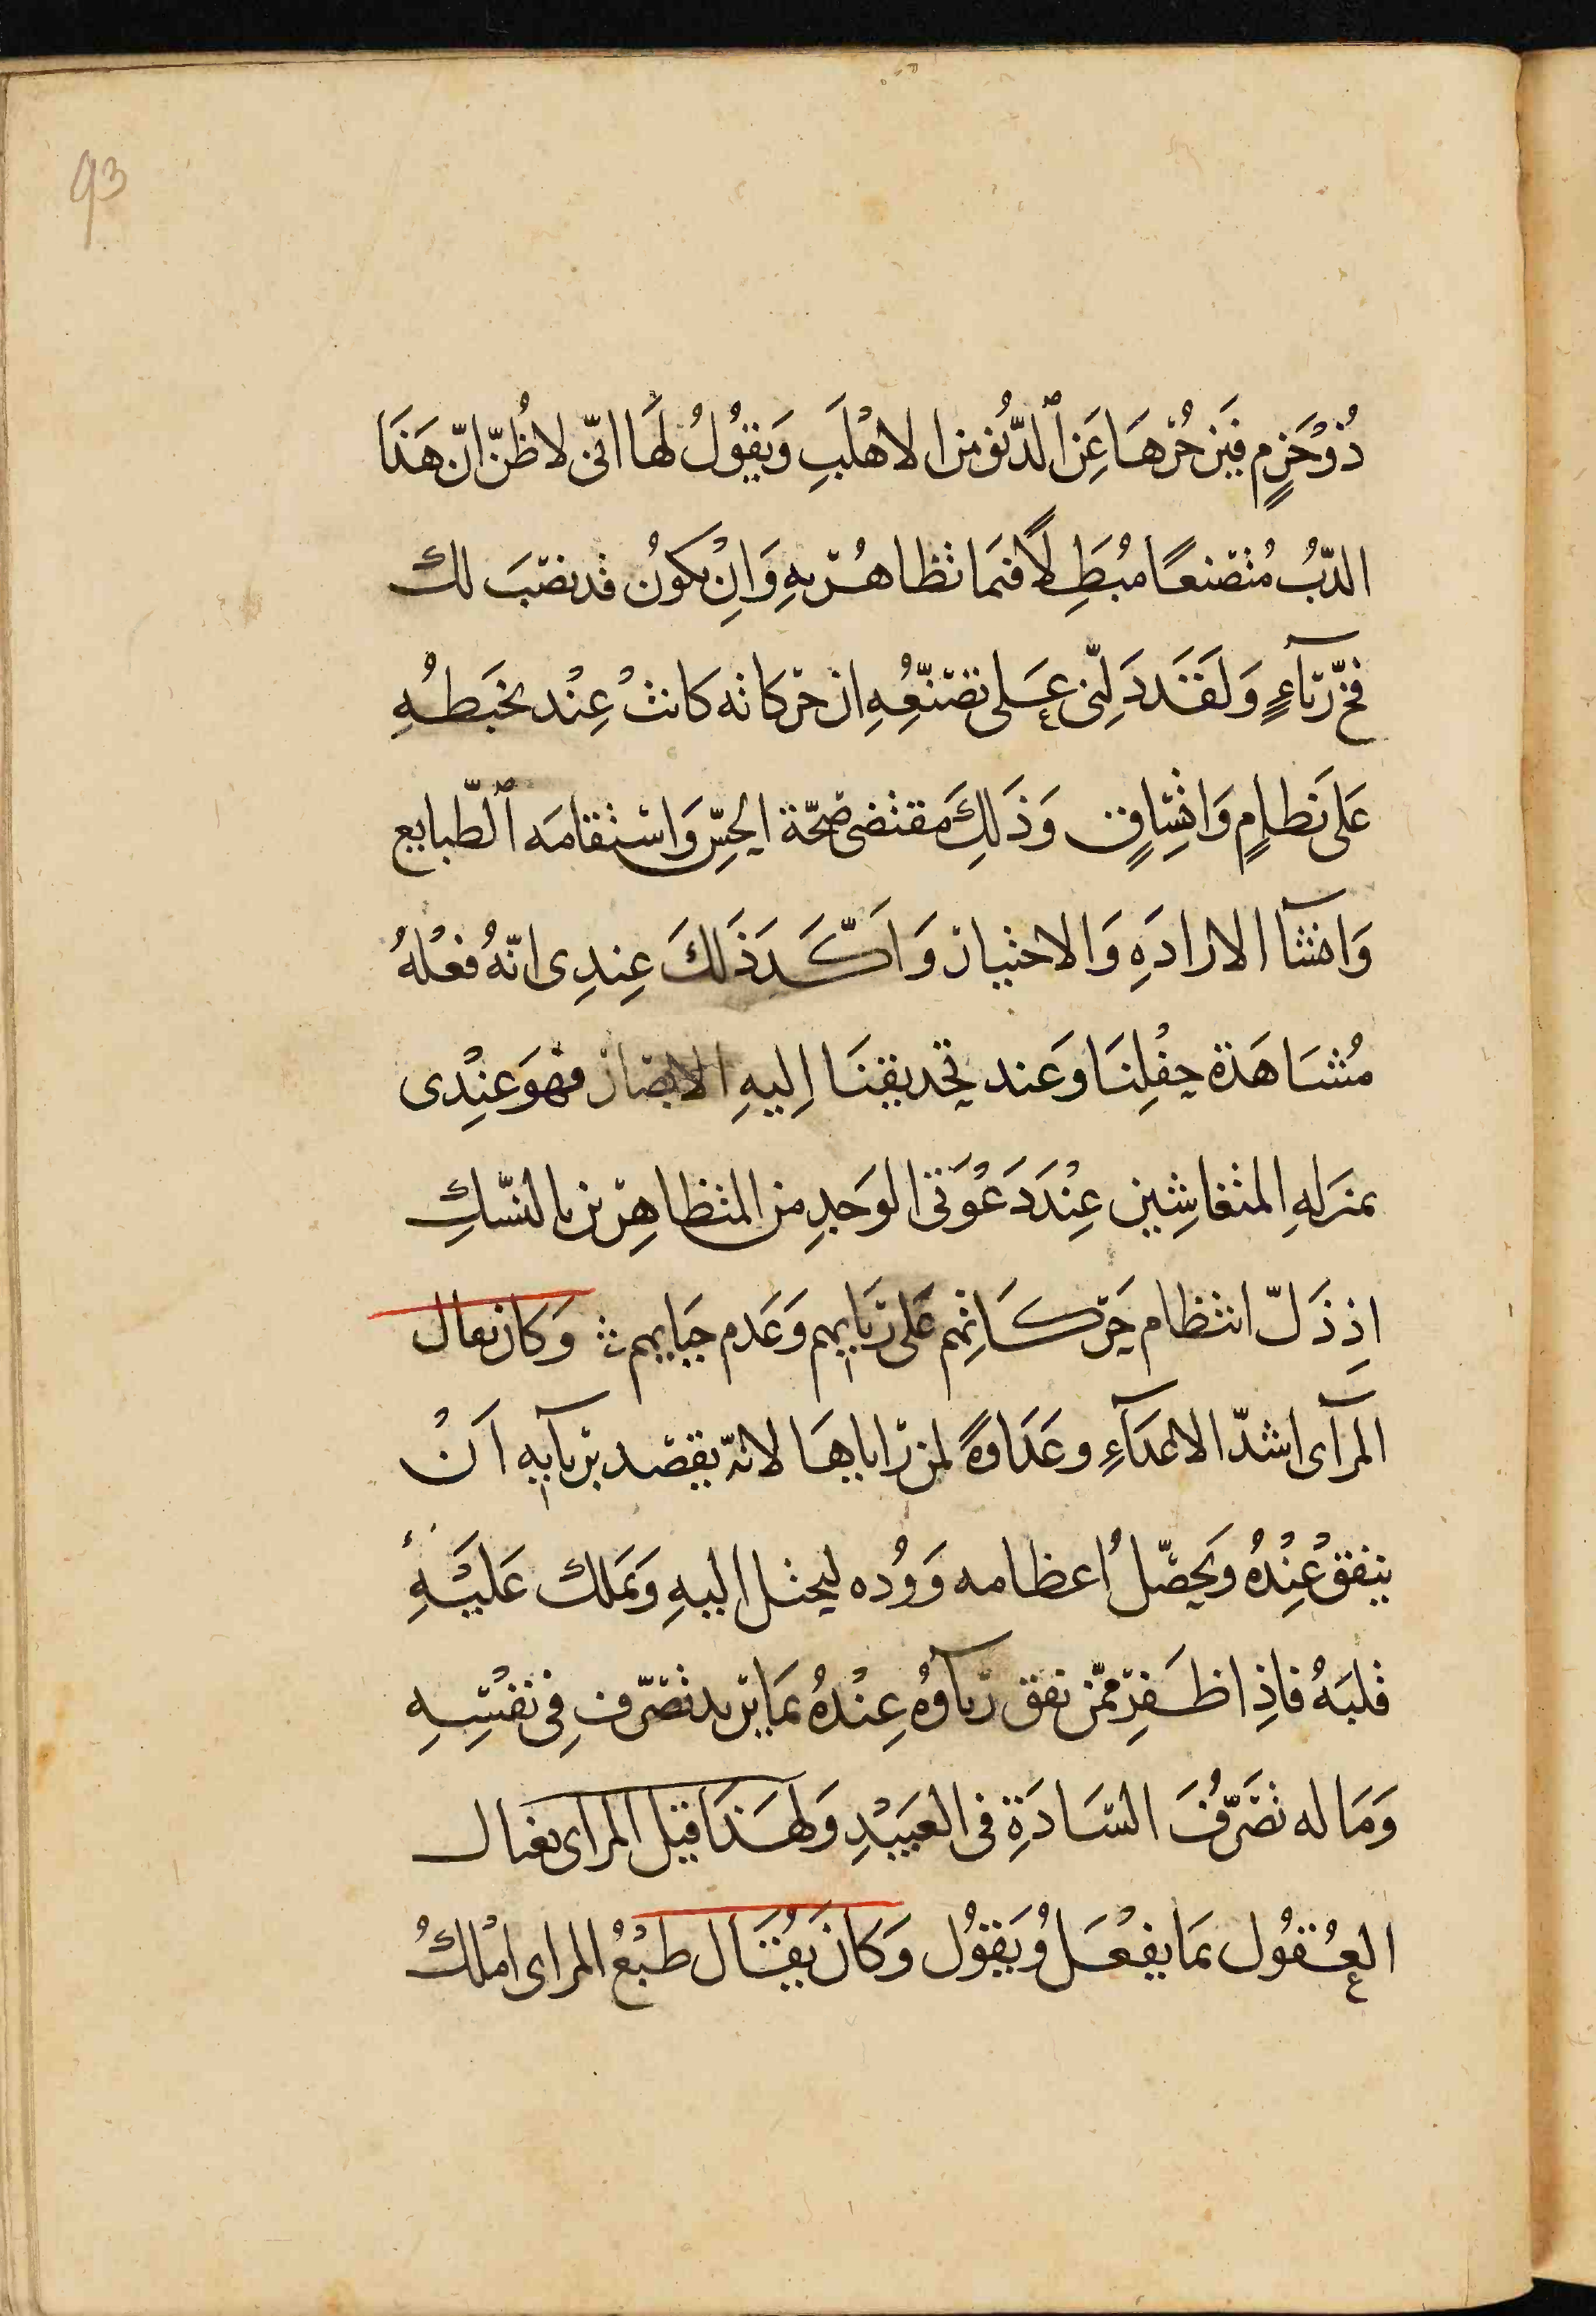 93
ذُو حَزمٍ فيَزجُرُهَا عَنِ ٱلدُّنُو من الاهْلَبِ وَيَقُولُ لَهَا انّى لاظُنّ انّ هَذَا
الدّبُ مُتصَنعًا مُبطِلًا فيمَا تظاهُر بِهِ وَانِ يكونُ قد نصَبَ لك
فخّ رِيَآءٍ وَلَقَد دَلّنِى عَلى تصَنّعُهِ ان حركاته كانتْ عِنْد تخَبطهِ
عَلى نظامٍ وَاتّسِاقٍ وَذَلِكَ مَقتضى صحّة الحِسّ وَاستقامَه ٱلطّبايع
وَانشآ الارادَهِ وَالاختيار وَاكّدَ ذَلكَ عِندِى انّهُ فعْلهُ
مُشَاهَدة حِفْلِنَا وعَند تحديقنَا اِليهِ الابصار فهوَ عنِدى
بمنَزلهِ المتغاشِين عِنْدَ دَعْوَتى الوَجدِ من المتظاهِرين بالنسّكِ
اذِ دَلّ انتظام حَركَاتِهم عَلى رِيَايهم وَعَدم حيَايهم وَكان يقال
المرآى اشدّ الاعدَآءِ وعَدَاوَةً لمن راياهَا لانّه يقصد بريآيهِ اَنْ
ينفق عِنْدهُ ويَحصّلُ اعظامه وَوُده ليحتل اليهِ وَيمَلك عَليْهِ
قلبَهُ فاذِا ظَفِر ممّن نفق رياوهُ عِنْدهُ بمَا يريد تصَرّف فِى نفسِهِ
وَمَا له تصَرّفَ السّادَةِ فى العَبَيْدِ وَلِهَذَا قيل المراى يغتال
العُقُول بمَا يفعَلُ وُيَقوُل وَكانَ يُقَال طبْعُ المراى امْلكُ